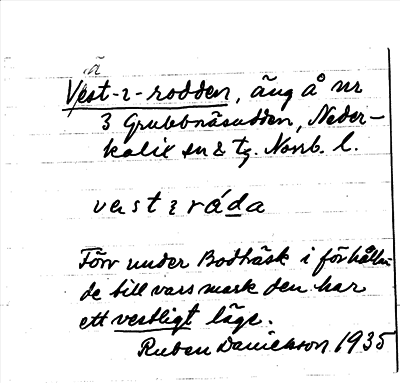 ä
Vest-2-rodden, äng å nr
3 Grubbnäsudden, Neder-
kalix sn & tg. Norrb. l.
vest 2 ráda
Förr under Bodträsk i förhållan-
de till vars mark den har
ett vestligt läge.
Ruben Danielsson 1935